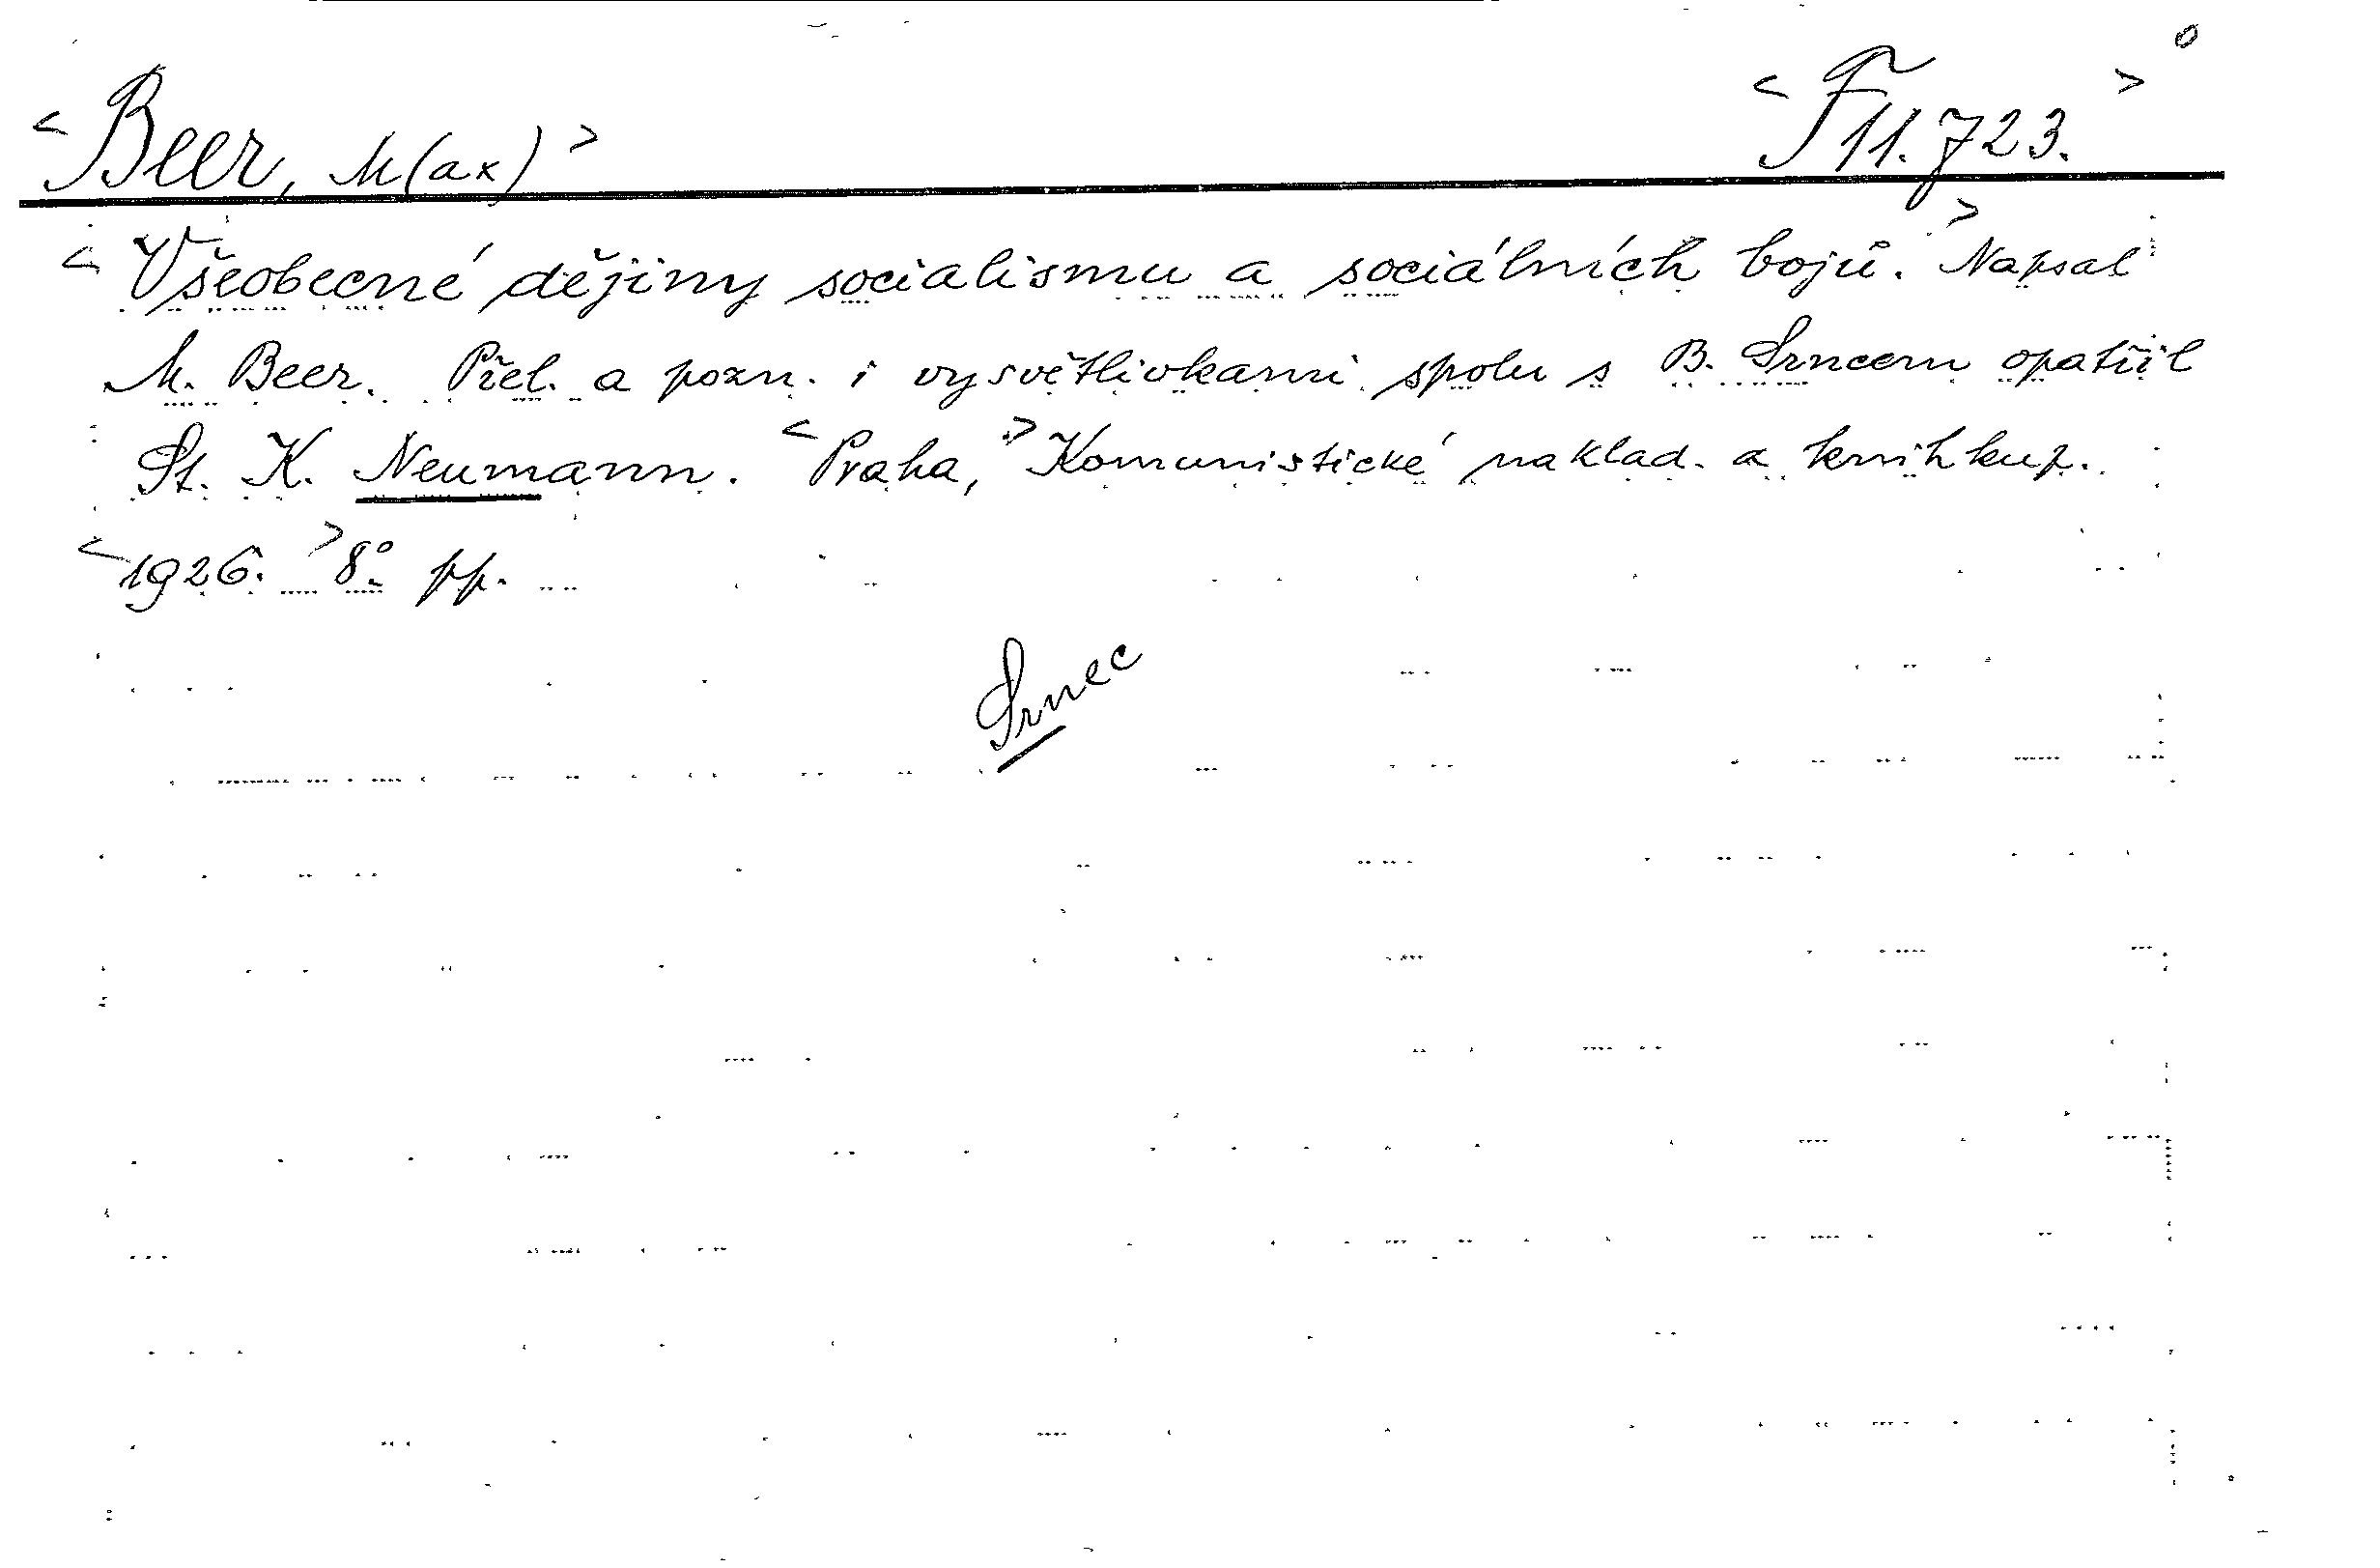 <Beer, M(ax)> <F 11.723.>
<Všeobecné dějiny socialismu a sociálních bojů.> Napsal
M. Beer. Přel. a pozn. i vysvětlivkami spolu s B. Srncem opatřil
St. K. Neumann. <Praha,> Komunistické naklad. a knihkup.
<1926.> 8° pp.
Srnec